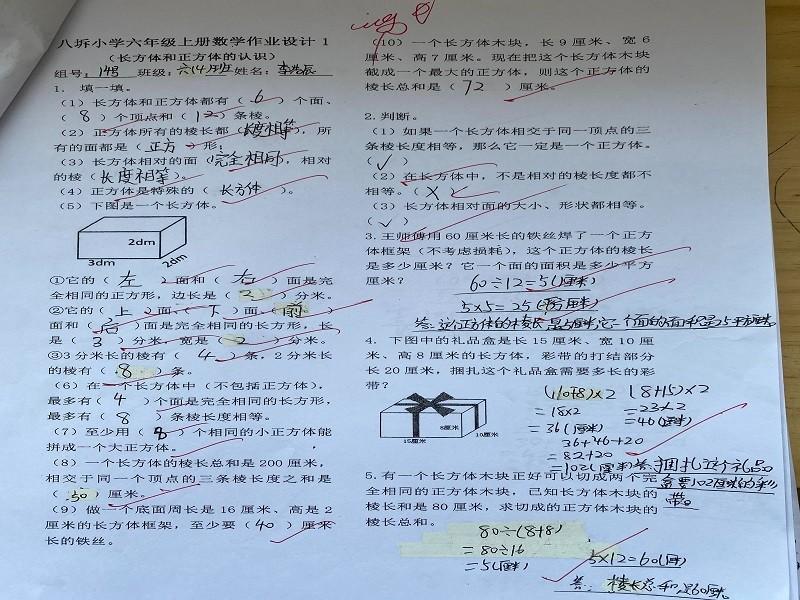 八坼小学六年级上册数学作业设计 1
（长方体和正方体的认识）
组号: 14号 班级: 六(4)班 姓名:
1. 填一填。
（1）长方体和正方体都有（ 6 ）个面、
（ 8 ）个顶点和（ 12 ）条棱。
（2）正方体所有的棱长都（长度相等），所
有的面都是（正方）形；
（3）长方体相对的面（完全相同），相对
的棱（长度相等）。
（4）正方体是特殊的（ 长方体 ）。
（5）下图是一个长方体。
2dm
3dm
2dm
①它的（ 左 ）面和（ 右 ）面是完
全相同的正方形，边长是（ 2 ）分米。
②它的（ 上 ）面、（ 下 ）面、（ 前 ）
面和（ 后 ）面是完全相同的长方形，长
是（ 3 ）分米，宽是（ 2 ）分米。
③3 分米长的棱有（ 4 ）条，2 分米长
的棱有（ 8 ）条。
（6）在一个长方体中（不包括正方体），
最多有（ 4 ）个面是完全相同的长方形，
最多有（ 8 ）条棱长度相等。
（7）至少用（ 8 ）个相同的小正方体能
拼成一个大正方体。
（8）一个长方体的棱长总和是 200 厘米，
相交于同一个顶点的三条棱长度之和是
（ 50 ）厘米。
（9）做一个底面周长是 16 厘米、高是 2
厘米的长方体框架，至少要（ 40 ）厘米
长的铁丝。
（10）一个长方体木块，长 9 厘米、宽 6
厘米、高 7 厘米。现在把这个长方体木块
截成一个最大的正方体，则这个正方体的
棱长总和是（ 72 ）厘米。
2. 判断。
（1）如果一个长方体相交于同一顶点的三
条棱长度相等，那么它一定是一个正方体。
（ √ ）
（2）在长方体中，不是相对的棱长度都不
相等。（ X ）
（3）长方体相对面的大小、形状都相等。
（ √ ）
3. 王师傅用 60 厘米长的铁丝焊了一个正方
体框架（不考虑损耗），这个正方体的棱长
是多少厘米？它一个面的面积是多少平方
厘米？
60÷12=5(厘米)
5×5=25(平方厘米)
答:这个正方体的棱长是5厘米,它一个面的面积是25平方厘米。
4. 下图中的礼品盒是长 15 厘米、宽 10 厘
米、高 8 厘米的长方体，彩带的打结部分
长 20 厘米，捆扎这个礼品盒需要多长的彩
带？
8厘米
10厘米
15厘米
(10+8)×2
=18×2
=36(厘米)
(8+15)×2
=23×2
=46(厘米)
36+46+20
=82+20
=102(厘米) 答:捆扎这个礼品
需要102厘米的彩
带。
5. 有一个长方体木块正好可以切成两个完
全相同的正方体木块，已知长方体木块的
棱长和是 80 厘米，求切成的正方体木块的
棱长总和。
80÷(8+8)
=80÷16
=5(厘米)
5×12=60(厘米)
答: 棱长总和是60厘米。